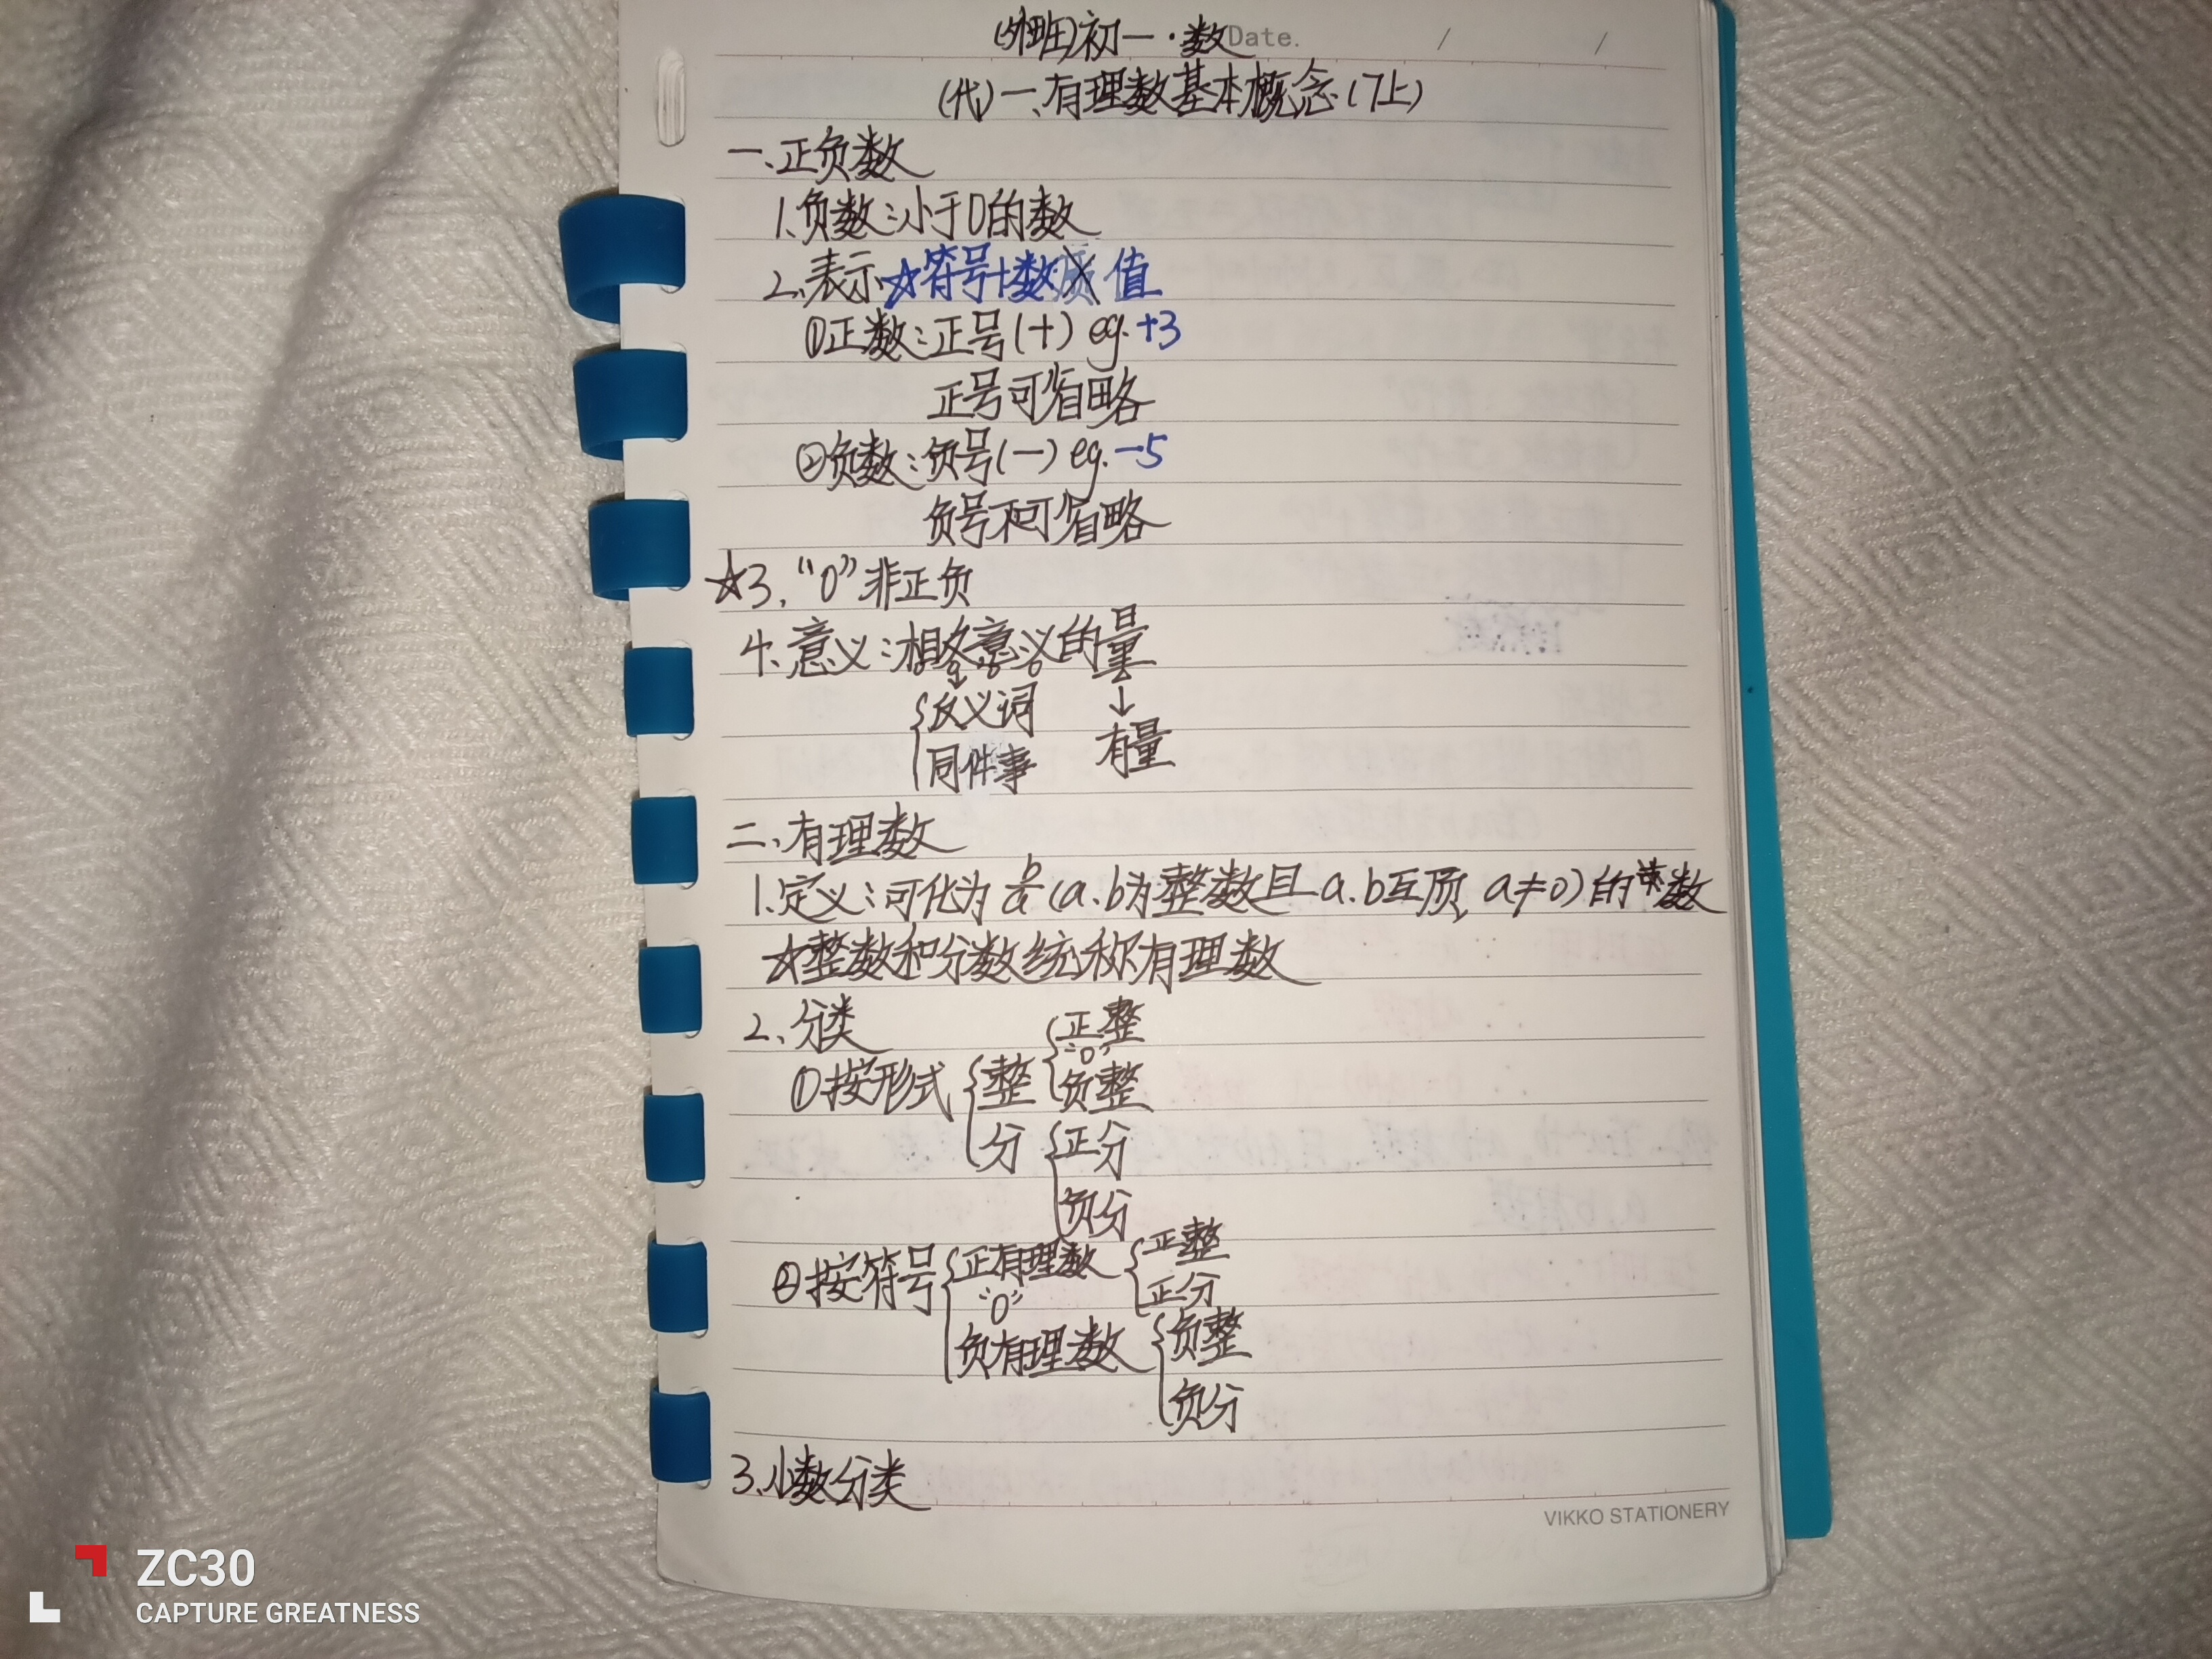 (外班)初一·数 Date. / /
(代)一、有理数基本概念(7上)
一、正负数
1.负数:小于0的数
2.表示☆符号+数 值
①正数:正号(+) eg.+3
正号可省略
②负数:负号(-) eg.-5
负号不可省略
☆3."0"非正负
4.意义:相反意义的量
↓ ↓
{反义词
同件事 有量
二、有理数
1.定义:可化为b/a(a.b为整数且a.b互质,a≠0)的数
☆整数和分数统称有理数
2、分类
①按形式{整{正整
"0"
负整
分{正分
负分
②按符号{正有理数{正整
正分
"0"
负有理数{负整
负分
3.小数分类
VIKKO STATIONERY
ZC30
CAPTURE GREATNESS